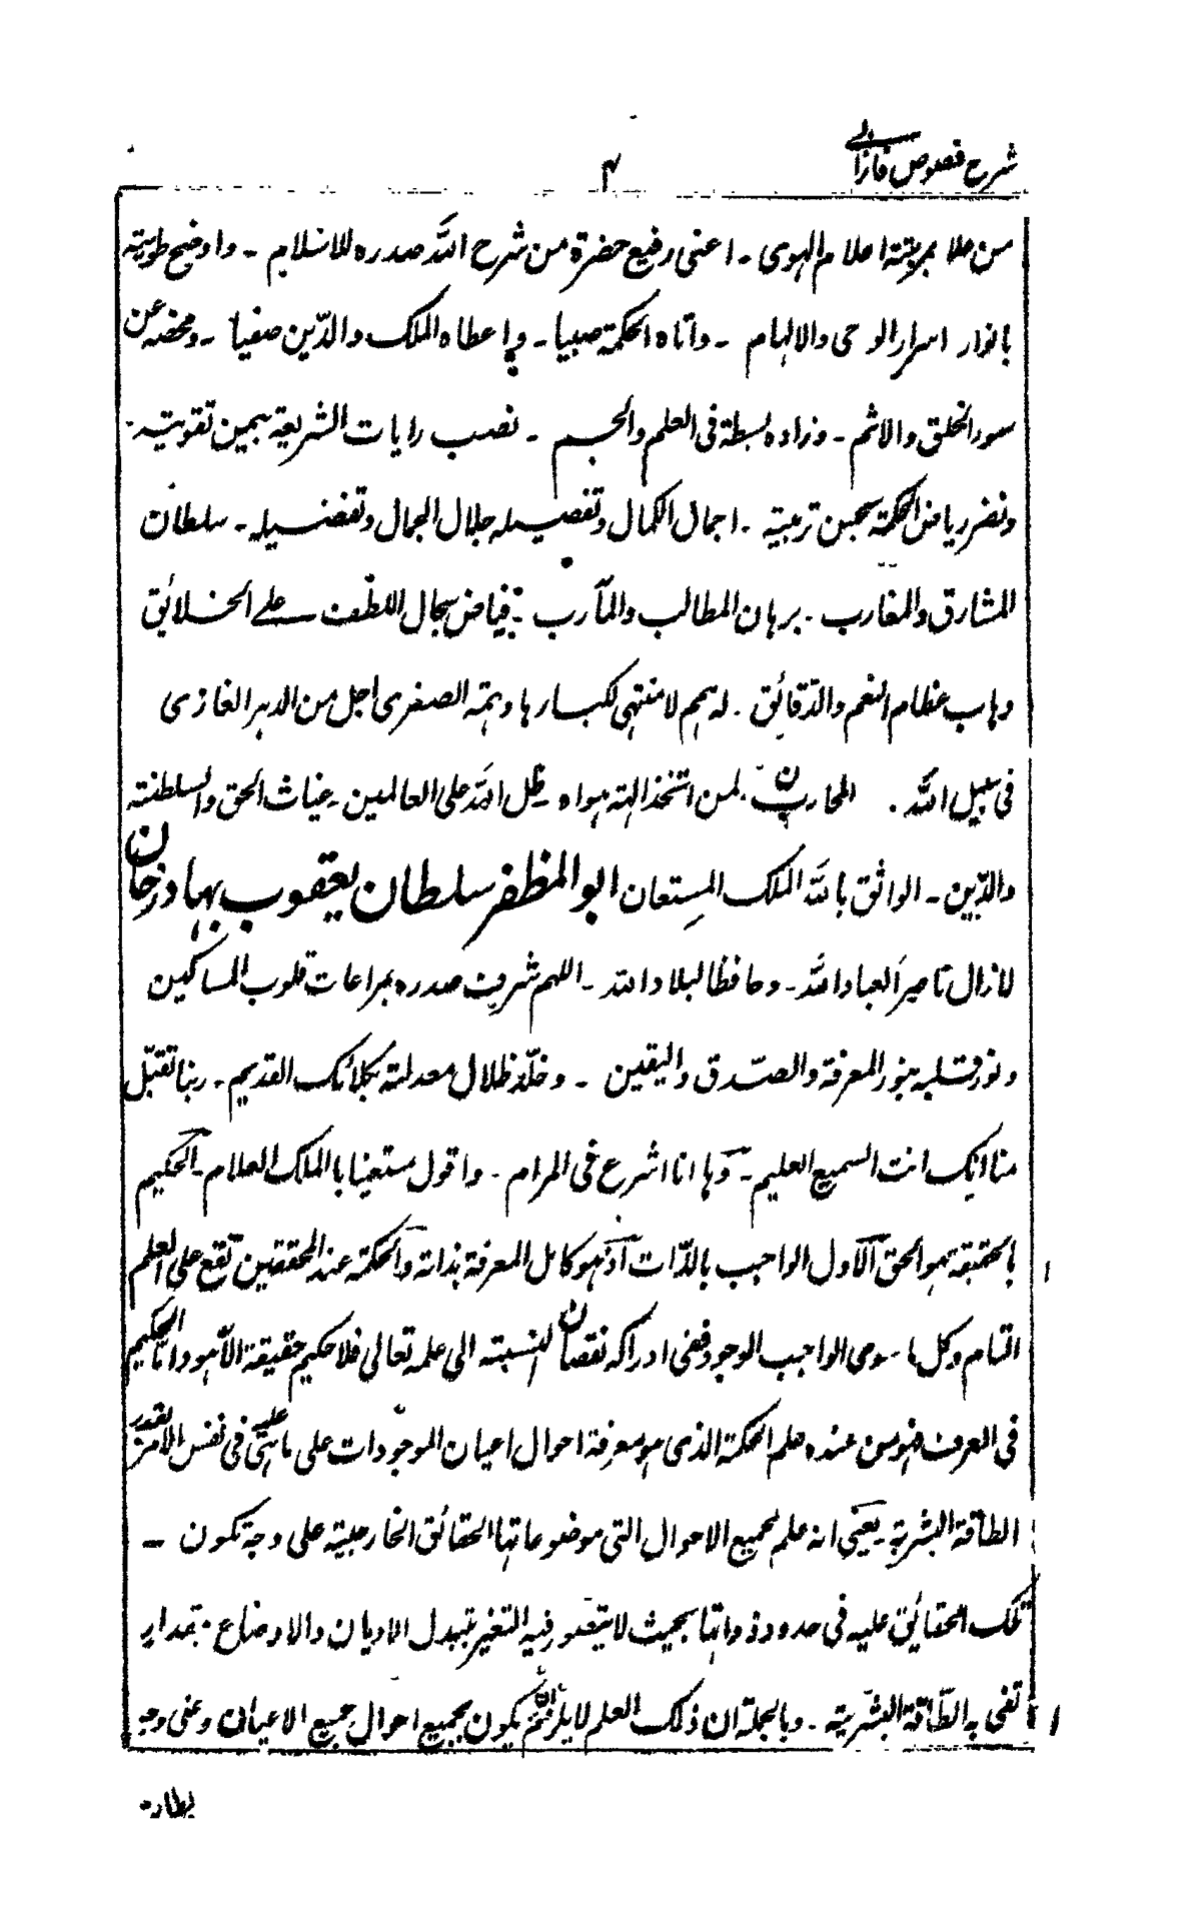 شرح فصوص فارابی
۴
من علا بمریته اعلام الهوی - اعنی رفیع حضرة من شرح الله صدره للاسلام - واوضح طویته
بانوار اسرار الوحی والالهام - واتاه الحکمة صبیا - واعطاه الملک والدّین صفیا - ومحضه عن
سوء الخلق والاثم - وزاده بسطة فی العلم والجسم - نصب رایات الشریعة بیمین تقویته -
ونضر ریاض الحکمة بحسن تربیته - اجمال الکمال وتفصیله جلال الجمال وتفضیله - سلطان
المشارق والمغارب - برهان المطالب والمآرب - فیاض سجال اللطف علی الخلائق
وهاب عظام النعم والدّقائق - له همم لا منتهی لکبارها وهمته الصغری اجل من الدهر الغازی
فی سبیل الله - المحارب لمن اتخذ الهه هواه - ظل الله علی العالمین - غیاث الحق والسلطنته
والدّین - الواثق بالله الملک المستعان ابو المظفر سلطان یعقوب بهادرخان
لازال ناصراً لعباد الله - وحافظا لبلاد الله - اللهم شرف صدره بمراعات قلوب المساکین
ونور قلبه بنور المعرفة والصّدق والیقین - وخلّد ظلال معدلته بکلائک القدیم - ربنا تقبّل
منا انک انت السمیع العلیم - وها انا اشرع فی المرام - واقول مستعینا بالملک العلام - الحکیم
بالحقیقة هو الحق الاول الواجب بالذّات اذ هو کامل المعرفة بذاته والحکمة عند المحققین تقع علی العلم
التام وکل ما سوی الواجب الوجود ففی ادراکه نقصان بالنسبته الی علمه تعالی فلا حکیم حقیقة الّا هو واما الحکیم
فی العرف فهو من عنده علم الحکمة الذی هو معرفة احوال اعیان الموجودات علی ما هی علیه فی نفس الامر بقدر
الطاقة البشریة یعنی انه علم بجمیع الاحوال التی موضوعاتها الحقائق الخارجیة علی وجه تکون -
تلک الحقائق علیه فی حدود ذواتها بحیث لا یتصور فیه التغیر بتبدل الادیان والاوضاع - بمقدار
تفی به الطّاقة البشریّة - وبالجملة ان ذلک العلم لا یلزم ان یکون بجمیع احوال جمیع الاعیان وعلی وجه